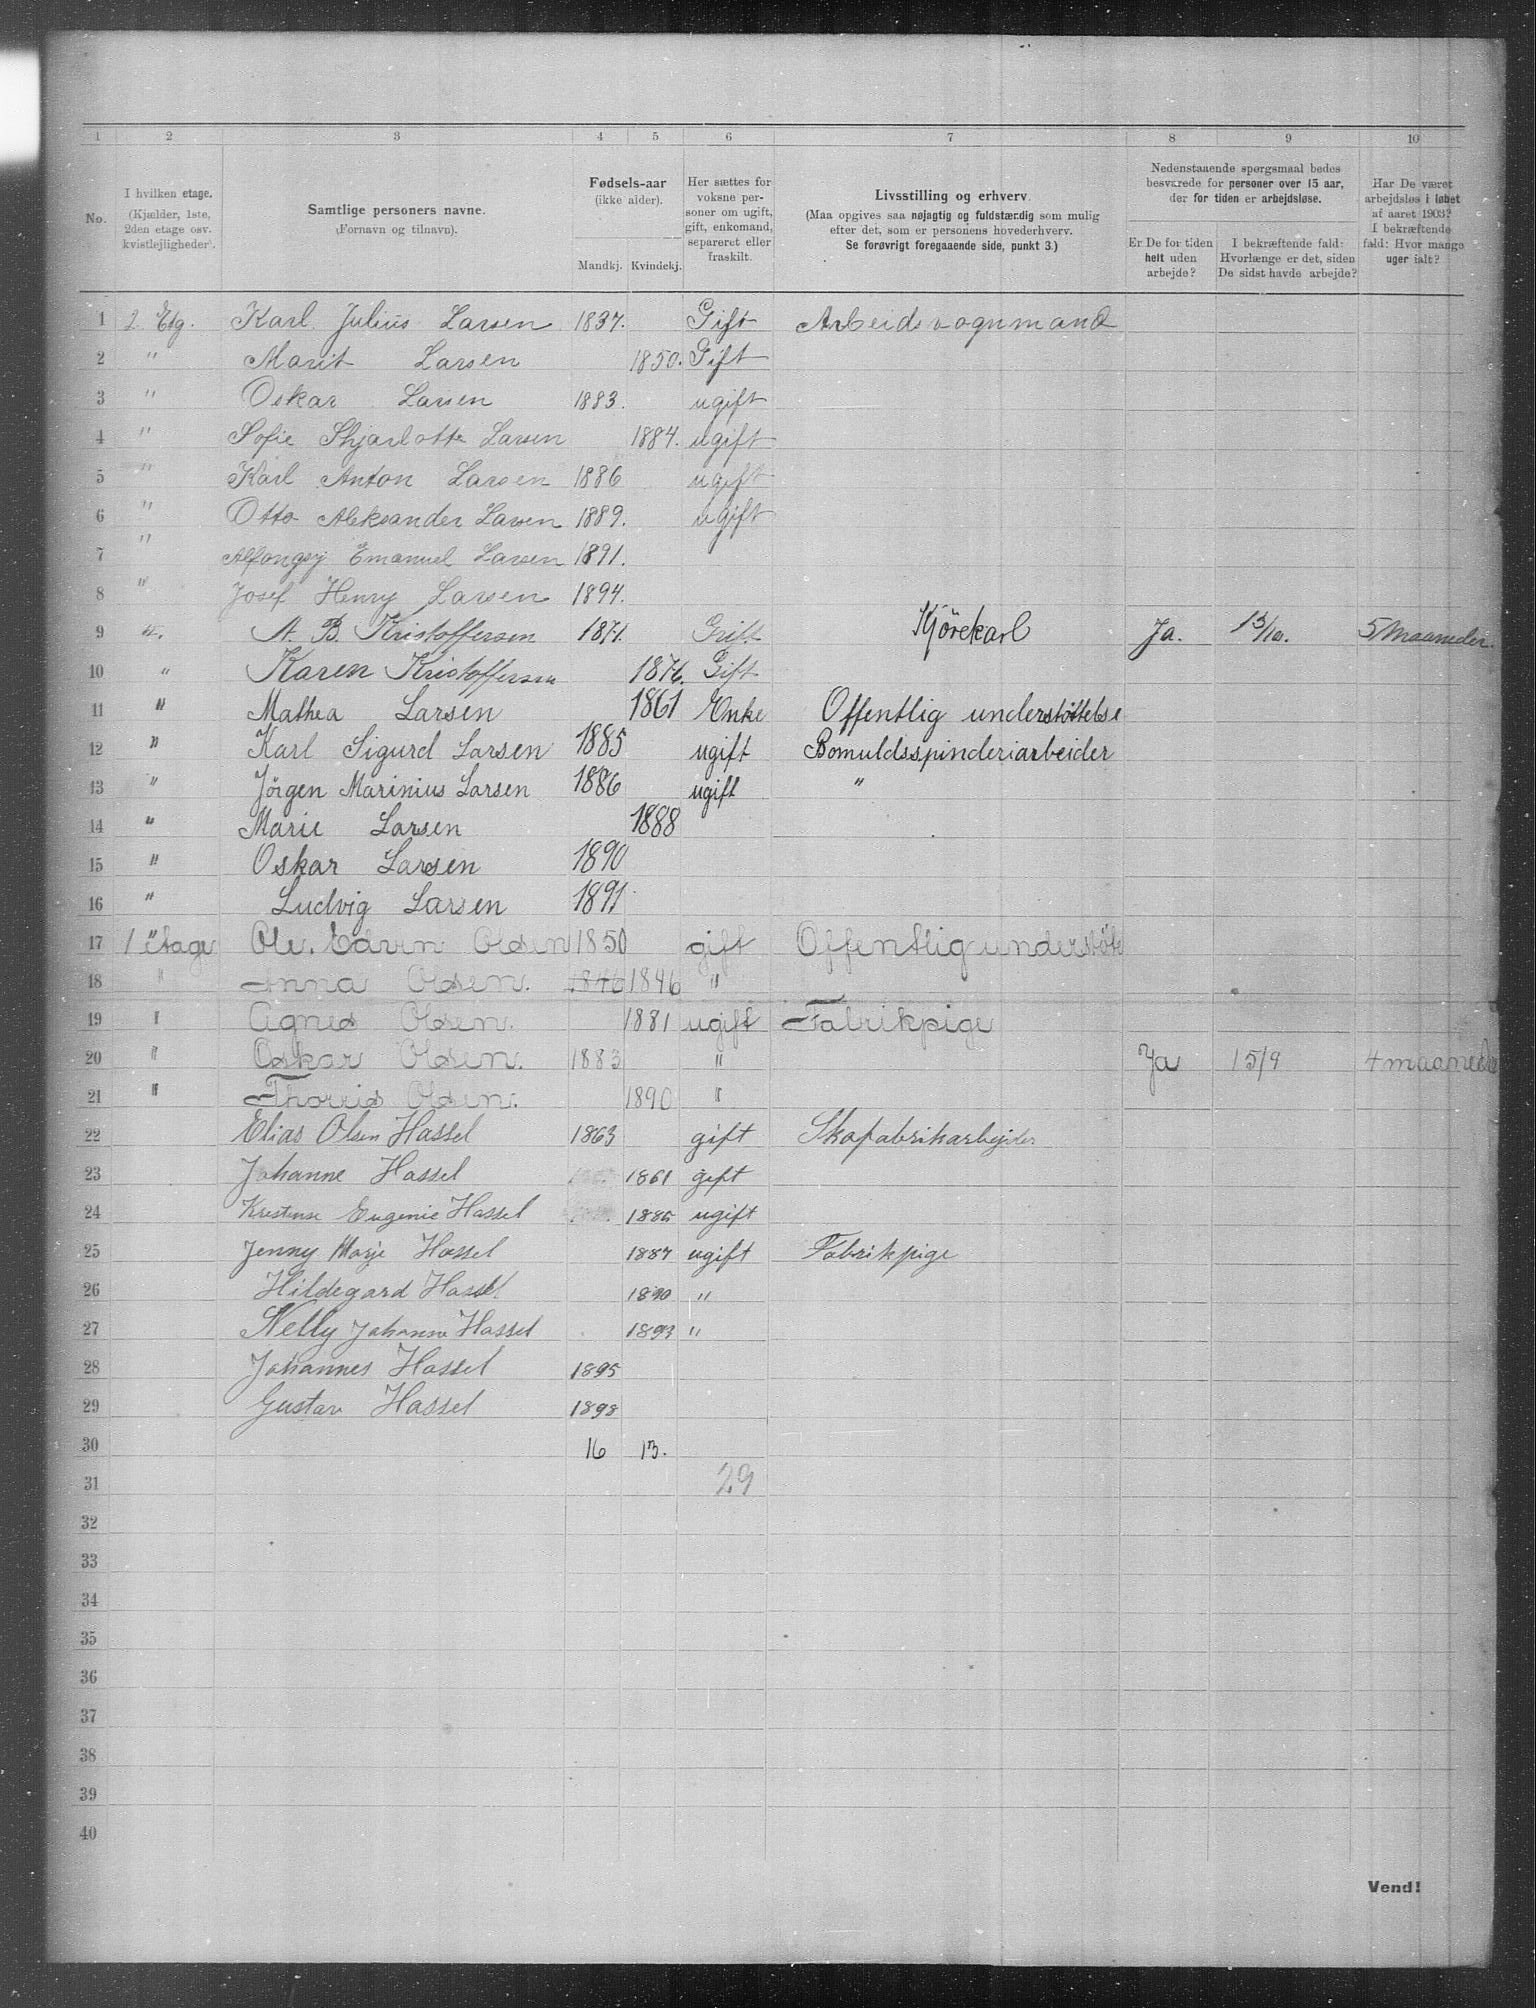 1 2 3 4 5 6 7 8 9 10
No. I hvilken etage. (Kjælder, 1ste, 2den etage osv. kvistlejligheder). Samtlige personers navne. (Fornavn og tilnavn). Fødsels-aar (ikke alder). Mandkj. Kvindekj. Her sættes for voksne personer om ugift, gift, enkemand, separeret eller fraskilt. Livsstilling og erhverv. (Maa opgives saa nøjagtig og fuldstændig som mulig efter det, som er personens hovederhverv. Se forøvrigt foregaaende side, punkt 3.) Nedenstaaende spørgsmaal bedes besvarede for personer over 15 aar, der for tiden er arbejdsløse. Er De for tiden helt uden arbejde? I bekræftende fald: Hvorlænge er det, siden De sidst havde arbejde? Har De været arbejdsløs i løbet af aaret 1903? I bekræftende fald: Hvor mange uger ialt?
1 2. Etg. Karl Julius Larsen 1837. Gift Arbeidsvognmand
2 " Marit Larsen 1850. Gift
3 " Oskar Larsen 1883. ugift
4 " Sofie Shjarlotte Larsen 1884. ugift
5 " Karl Anton Larsen 1886 ugift
6 " Otto Aleksander Larsen 1889. ugift
7 " Emanuel Larsen 1891.
8 " Josef Henry Larsen 1894.
9 A. B. Kristoffersen 1871. Gift Kjörekarl Ja. 13/10. 5 Maaneder.
10 " Karen Kristoffersen 1876. Gift
11 " Mathea Larsen 1861 Enke Offentlig understöttelse
12 " Karl Sigurd Larsen 1885 ugift Bomuldsspinderiarbeider
13 " Jörgen Marinius Larsen 1886 ugift "
14 " Marie Larsen 1888
15 " Oskar Larsen 1890
16 " Ludvig Larsen 1891
17 1 etage Ole. Edvin Olsen 1850 gift Offentlig understöt
18 " Anna Olsen. 1846 1846 "
19 " Agnes Olsen. 1881 ugift Fabrikpige
20 " Oskar Olsen. 1883 " Ja 15/9 4 maaneder
21 " Thorris Olsen. 1890 "
22 Elias Olsen Hassel 1863 gift Skofabrikarbejder
23 Johanne Hassel 1861 gift
24 Kristense Eugenie Hassel 1885 ugift
25 Jenny Marje Hassel 1887 ugift Fabrikpige
26 Hildegard Hassel 1890 "
27 Nelly Johanne Hassel 1893 "
28 Johannes Hassel 1895
29 Gustav Hassel 1898
30 16 13.
31 29
32
33
34
35
36
37
38
39
40
Vend!